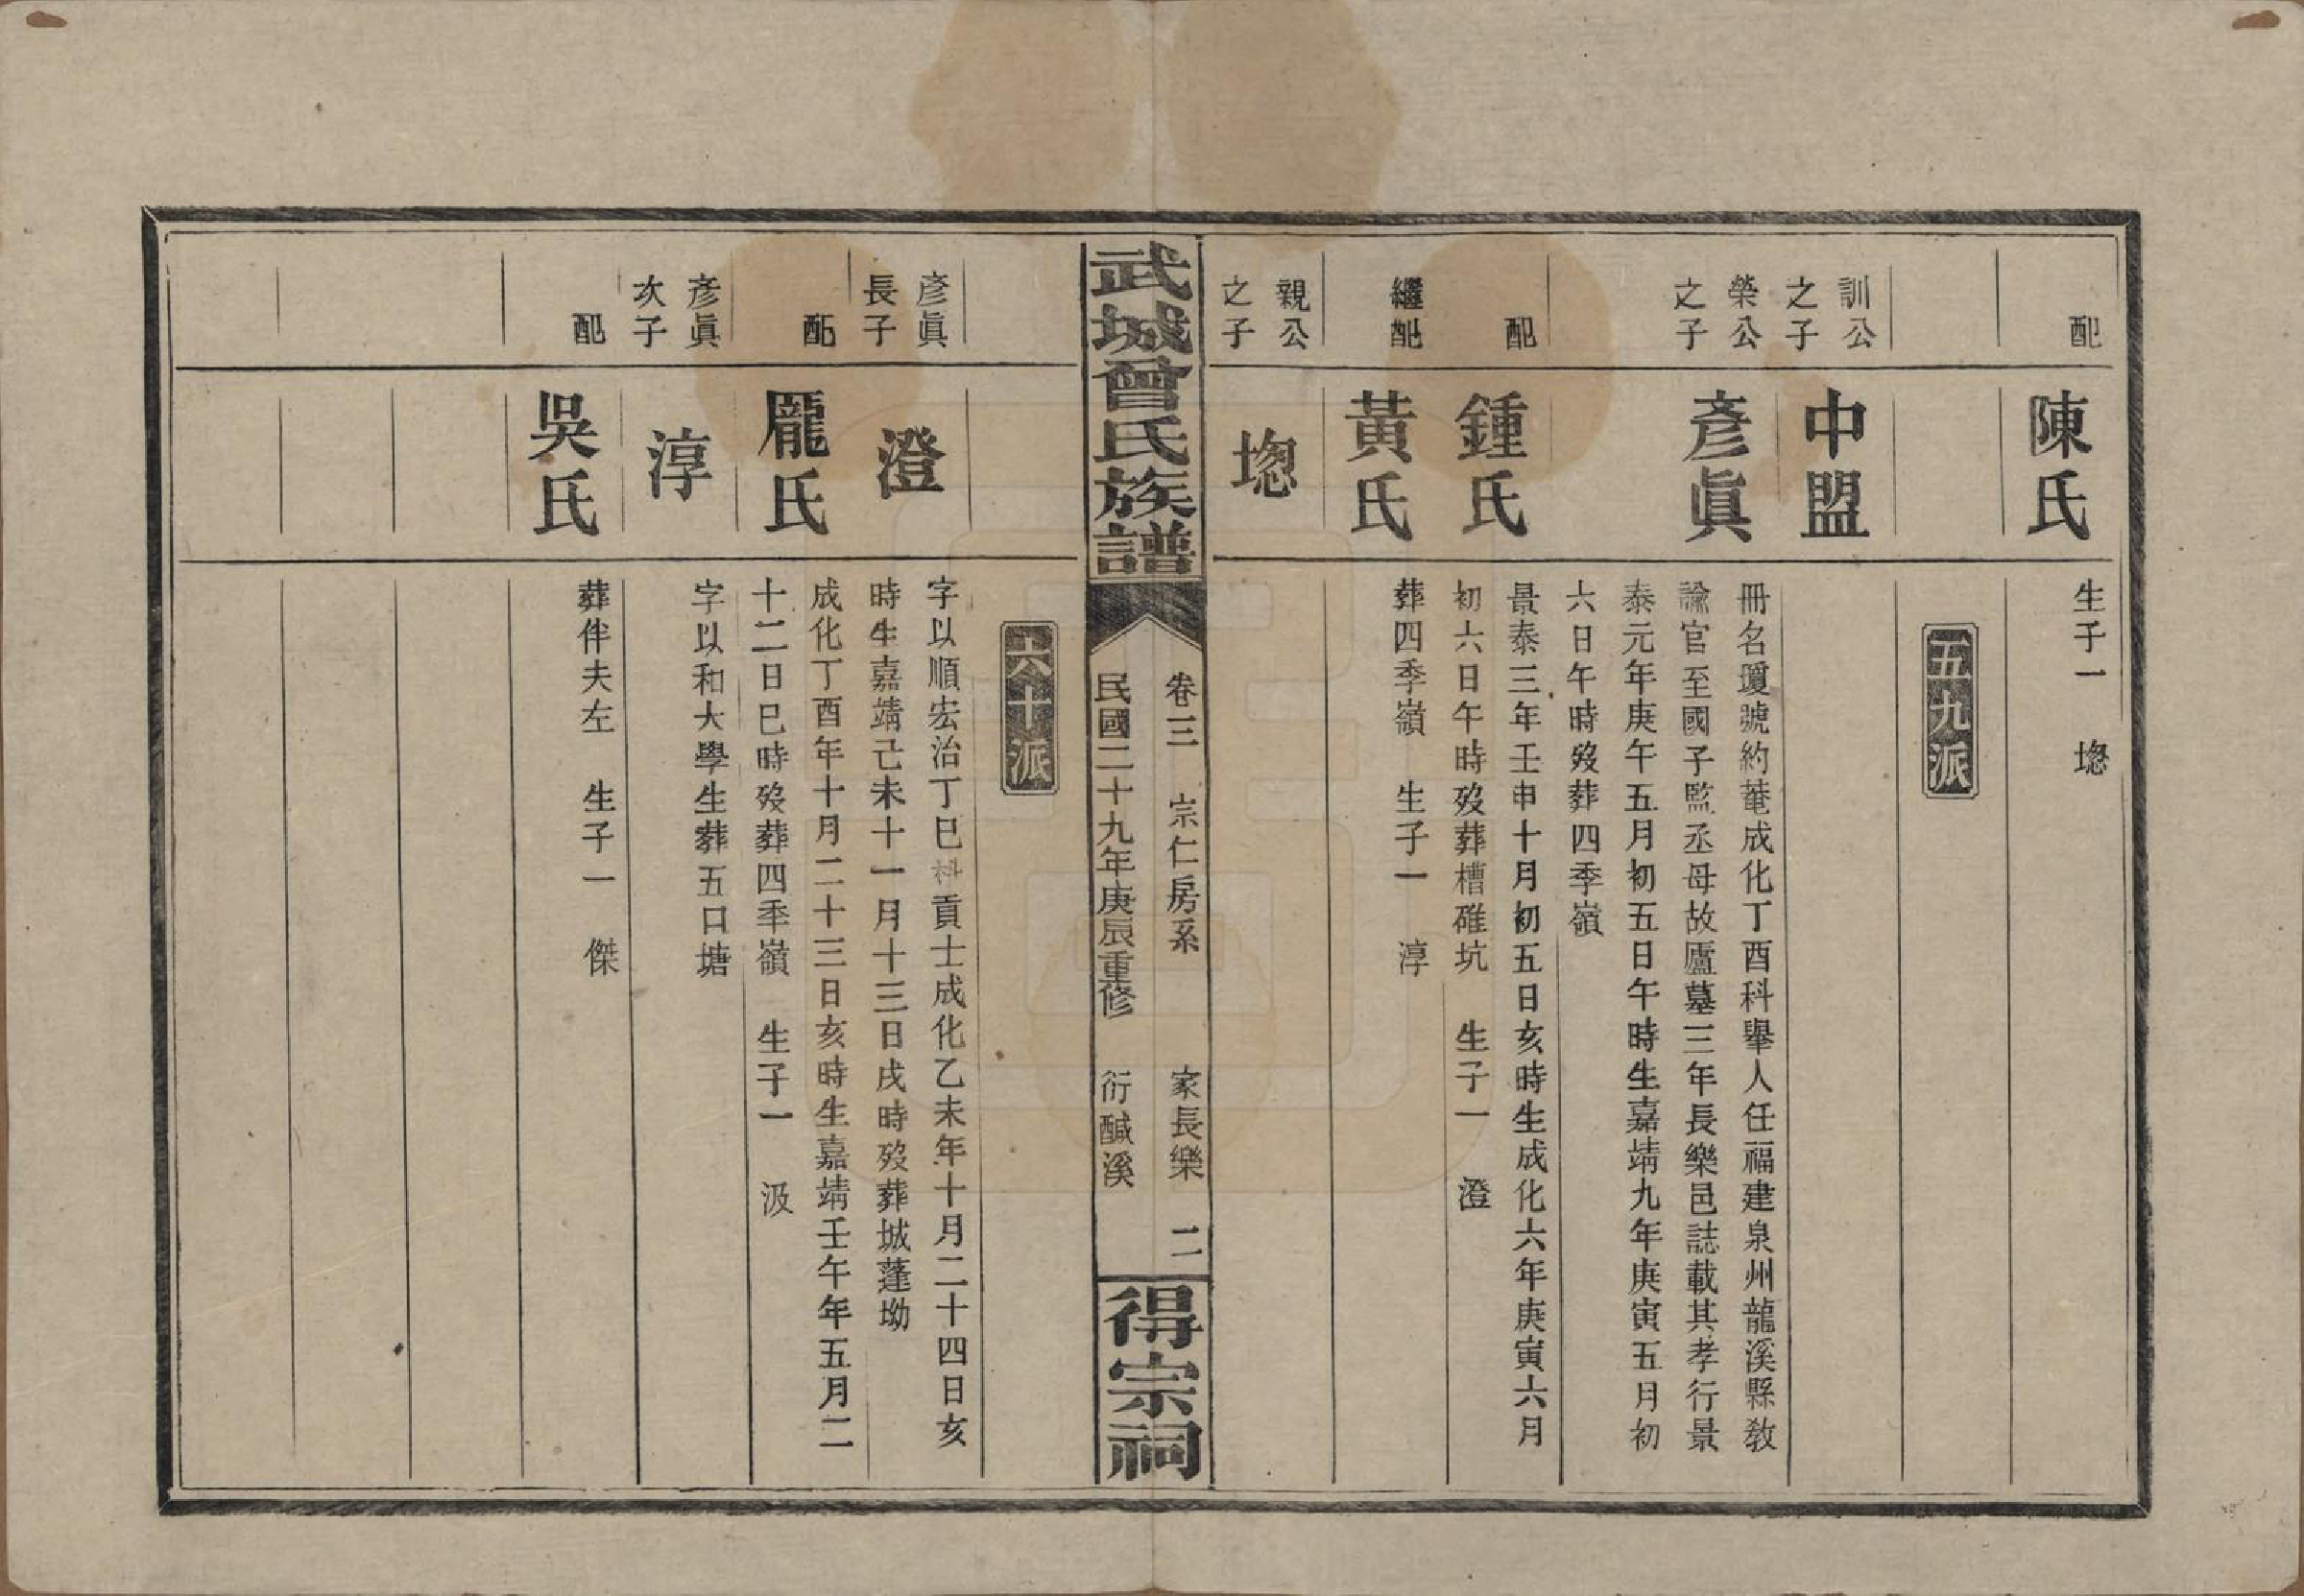 配
陳氏
生子一　㹅
五九派
訓公
之子
中盟
榮公
之子
彥眞
冊名瓊號約菴成化丁酉科舉人任福建泉州龍溪縣教
諭官至國子監丞母故廬墓三年長樂邑誌載其孝行景
泰元年庚午五月初五日午時生嘉靖九年庚寅五月初
六日午時歿葬四季嶺
配
鍾氏
景泰三年壬申十月初五日亥時生成化六年庚寅六月
初六日午時歿葬槽碓坑　生子一　澄
繼配
黃氏
葬四季嶺　生子一　淳
親公
之子
武城曾氏族譜
卷三　宗仁房系　家長樂　二
民國二十九年庚辰重修　衍鹹溪
得宗祠
六十派
彥眞
長子
澄
字以順宏治丁巳科貢士成化乙未年十月二十四日亥
時生嘉靖己未十一月十三日戌時歿葬城蓬坳
配
龐氏
成化丁酉年十月二十三日亥時生嘉靖壬午年五月二
十二日巳時歿葬四季嶺　生子一　汲
彥眞
次子
淳
字以和大學生葬五口塘
配
吳氏
葬伴夫左　生子一　傑